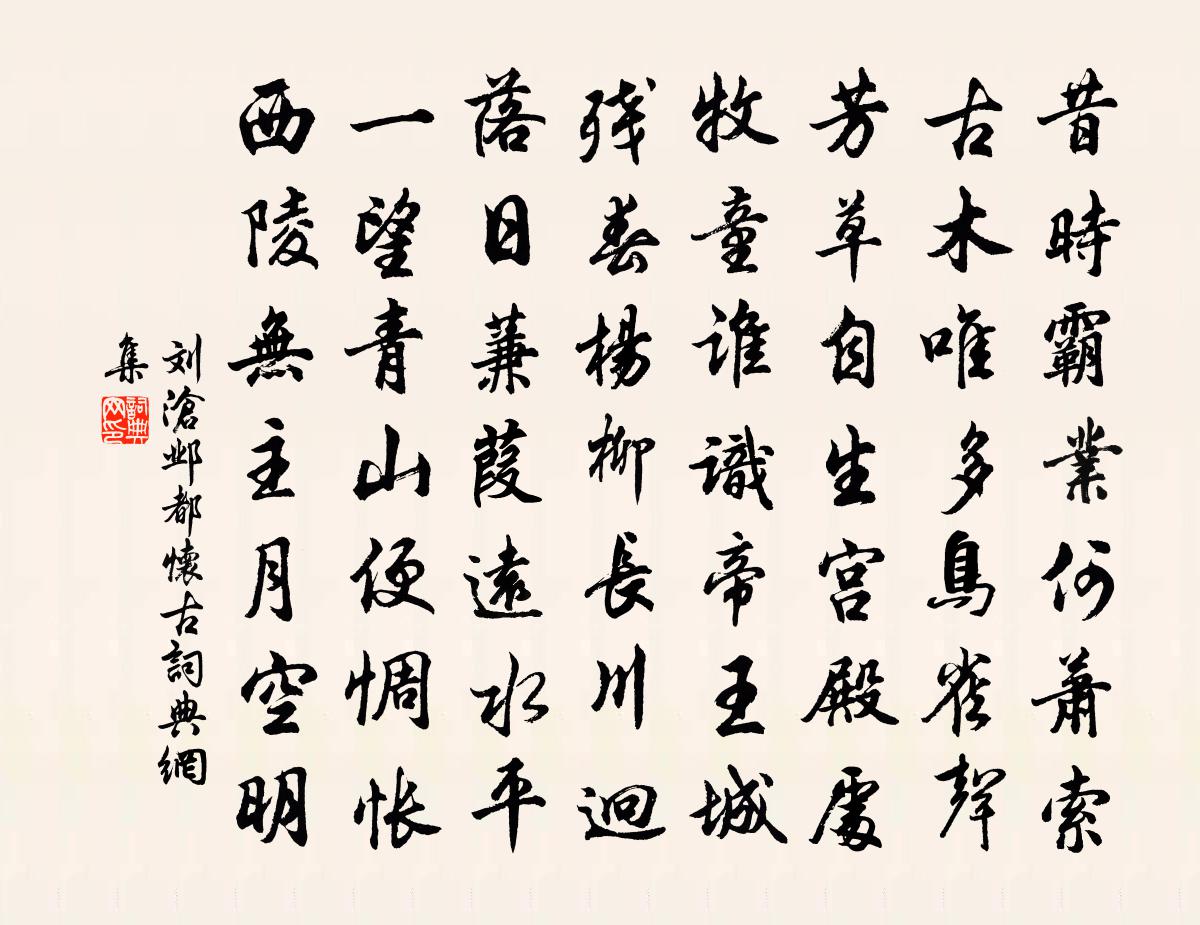 昔時霸業何蕭索
古木唯多鳥雀聲
芳草自生宫殿處
牧童誰識帝王城
殘春楊柳長川迥
落日蒹葭遠水平
一望青山便惆悵
西陵無主月空明
刘滄邺都懷古詞典網
集
詞典
网印